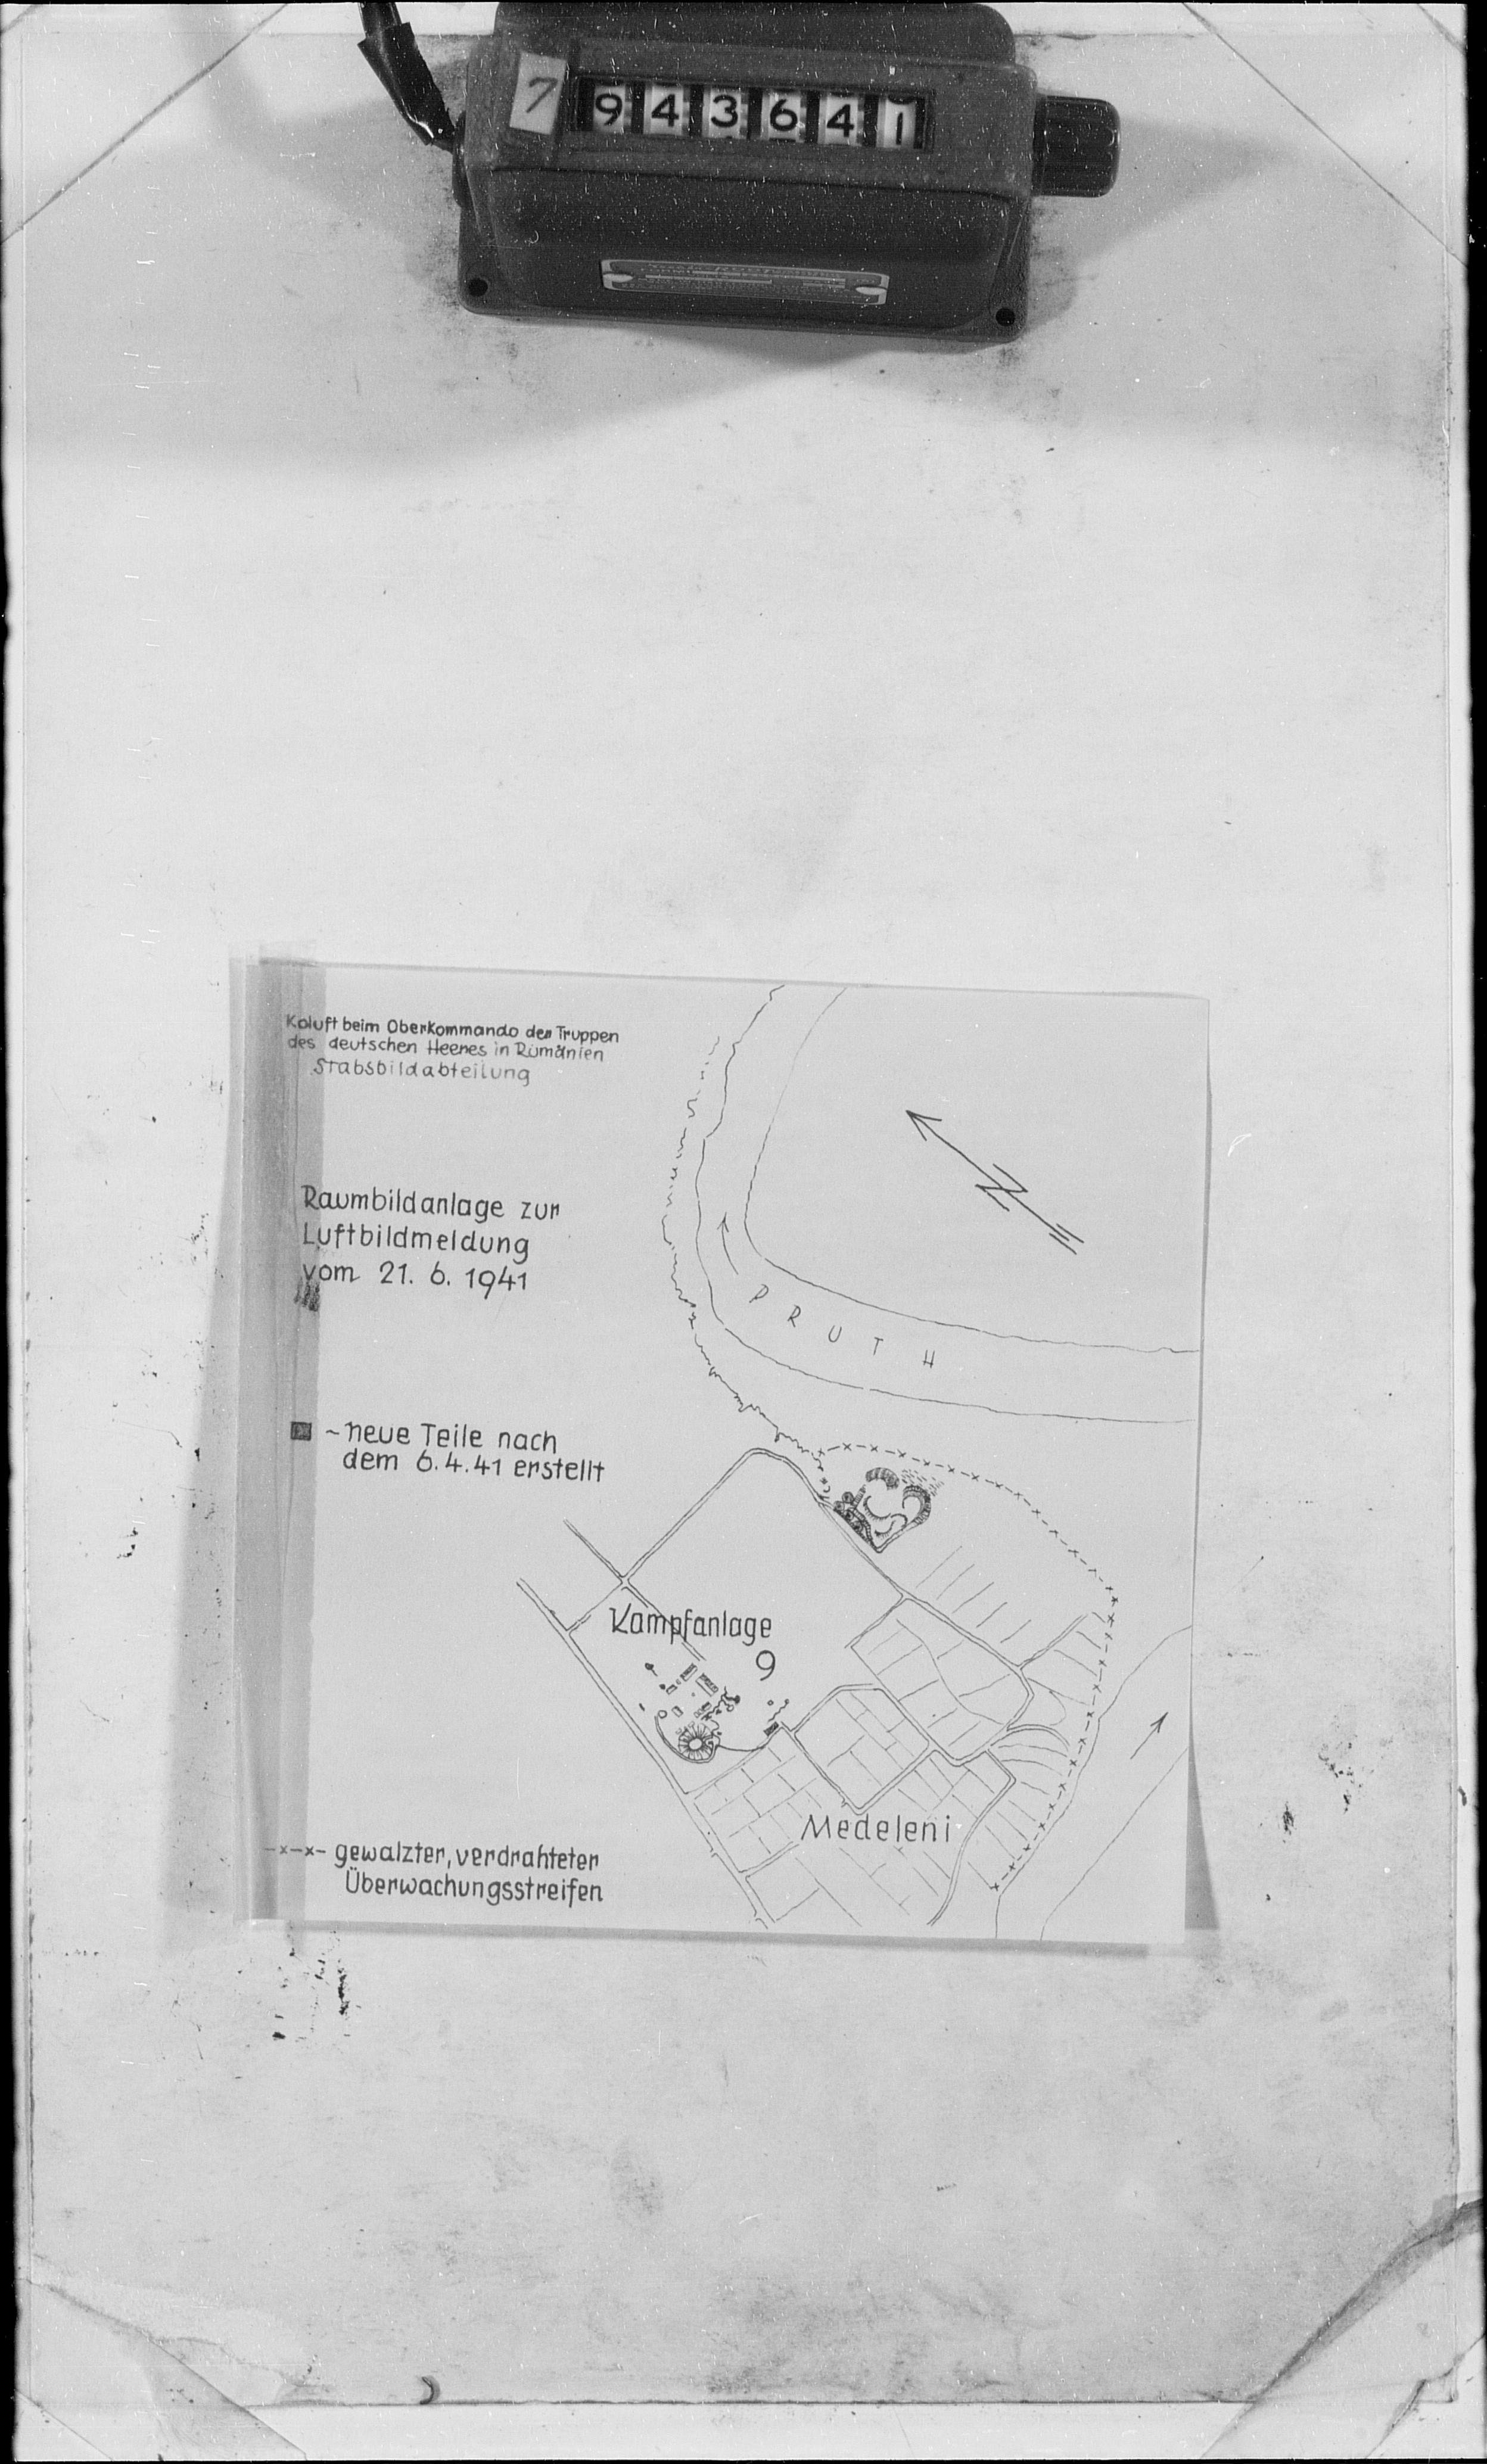 7 943641
Koluft beim Oberkommando der Truppen
des deutschen Heeres in Rumänien
Stabsbildabteilung
Raumbildanlage zur
Luftbildmeldung
vom 21. 6. 1941
N
PRUTH
~ neue Teile nach
dem 6.4.41 erstellt
Kampfanlage
9
Medeleni
-x-x- gewalzter, verdrahteter
Überwachungsstreifen